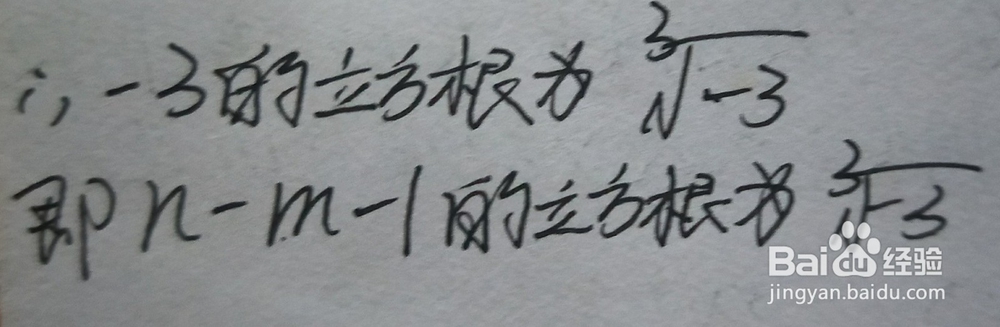 ∴ -3的立方根为 ∛-3
即 n-m-1的立方根为 ∛-3
Baidu经验
jingyan.baidu.com